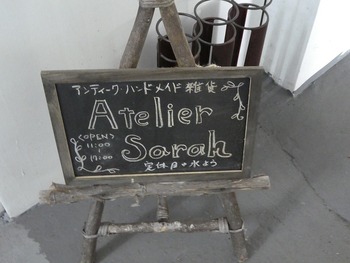 アンティーク・ハンドメイド雑貨
Atelier
Sarah
<OPEN>
11:00
~
17:00
定休日・水よう